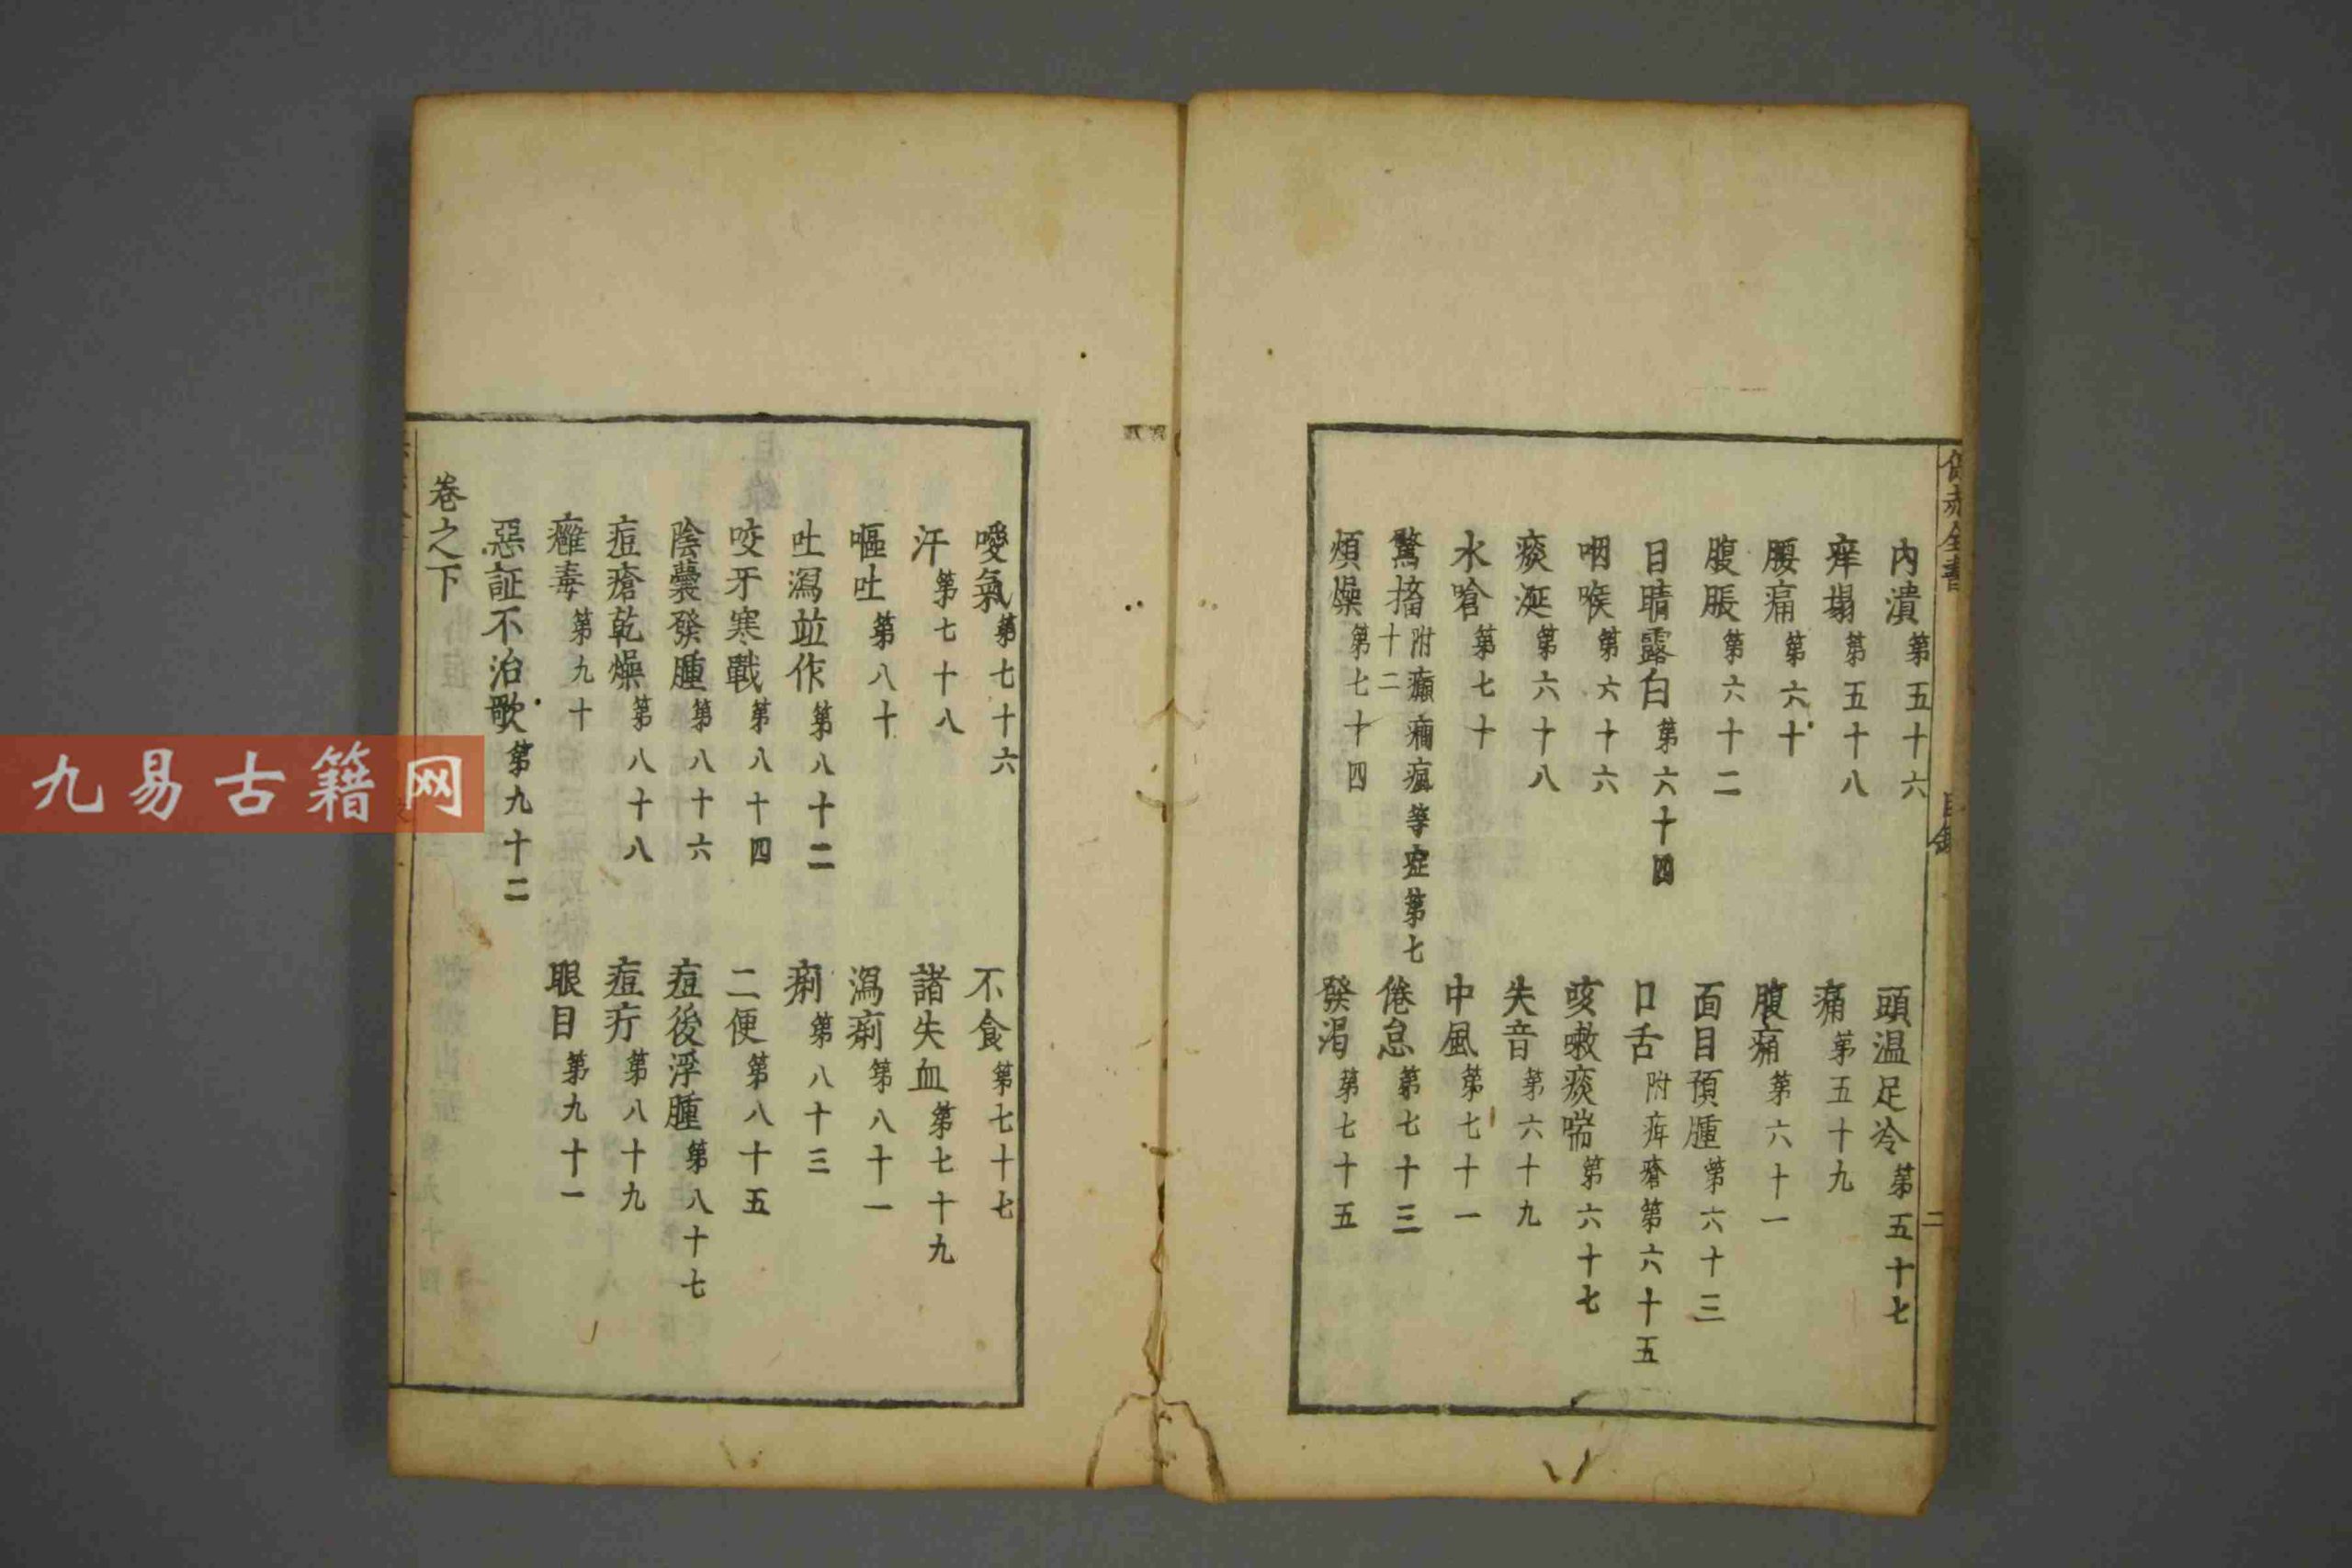 內潰第五十六 頭温足冷第五十七
痒塌第五十八 痛第五十九
腰痛第六十 腹痛第六十一
腹脹第六十二 面目預腫第六十三
目睛露白第六十四 口舌附疳瘡第六十五
咽喉第六十六 咳嗽痰喘第六十七
痰涎第六十八 失音第六十九
水嗆第七十 中風第七十一
驚搐附癲癎瘋等症第七十二 倦怠第七十三
煩燥第七十四 發渴第七十五
噯氣第七十六 不食第七十七
汗第七十八 諸失血第七十九
嘔吐第八十 瀉痢第八十一
吐瀉竝作第八十二 痢第八十三
咬牙寒戰第八十四 二便第八十五
陰囊發腫第八十六 痘後浮腫第八十七
痘瘡乾燥第八十八 痘疔第八十九
癰毒第九十 眼目第九十一
惡証不治歌第九十二
卷之下
保赤全書
目錄
二
九易古籍网